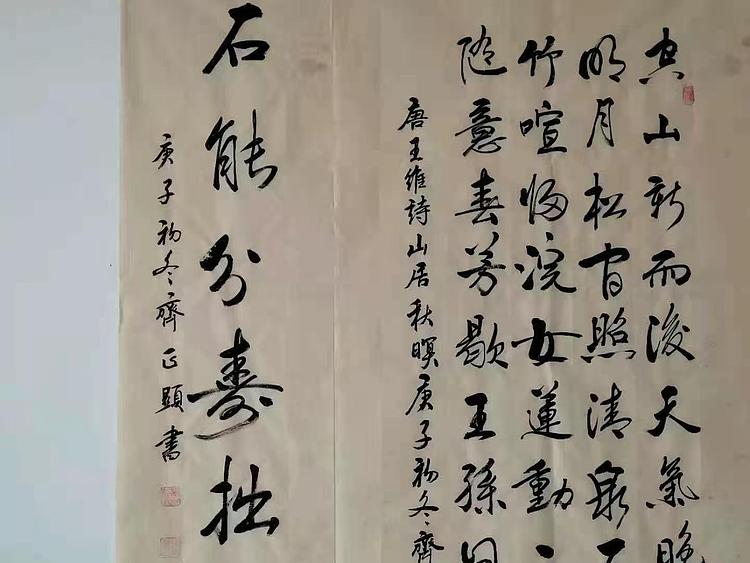 空山新雨後天氣晚
明月松間照清泉
竹喧歸浣女蓮動
隨意春芳歇王孫
唐王維詩山居秋暝庚子初冬齊
石能分壽拙
庚子初冬齊正顯書